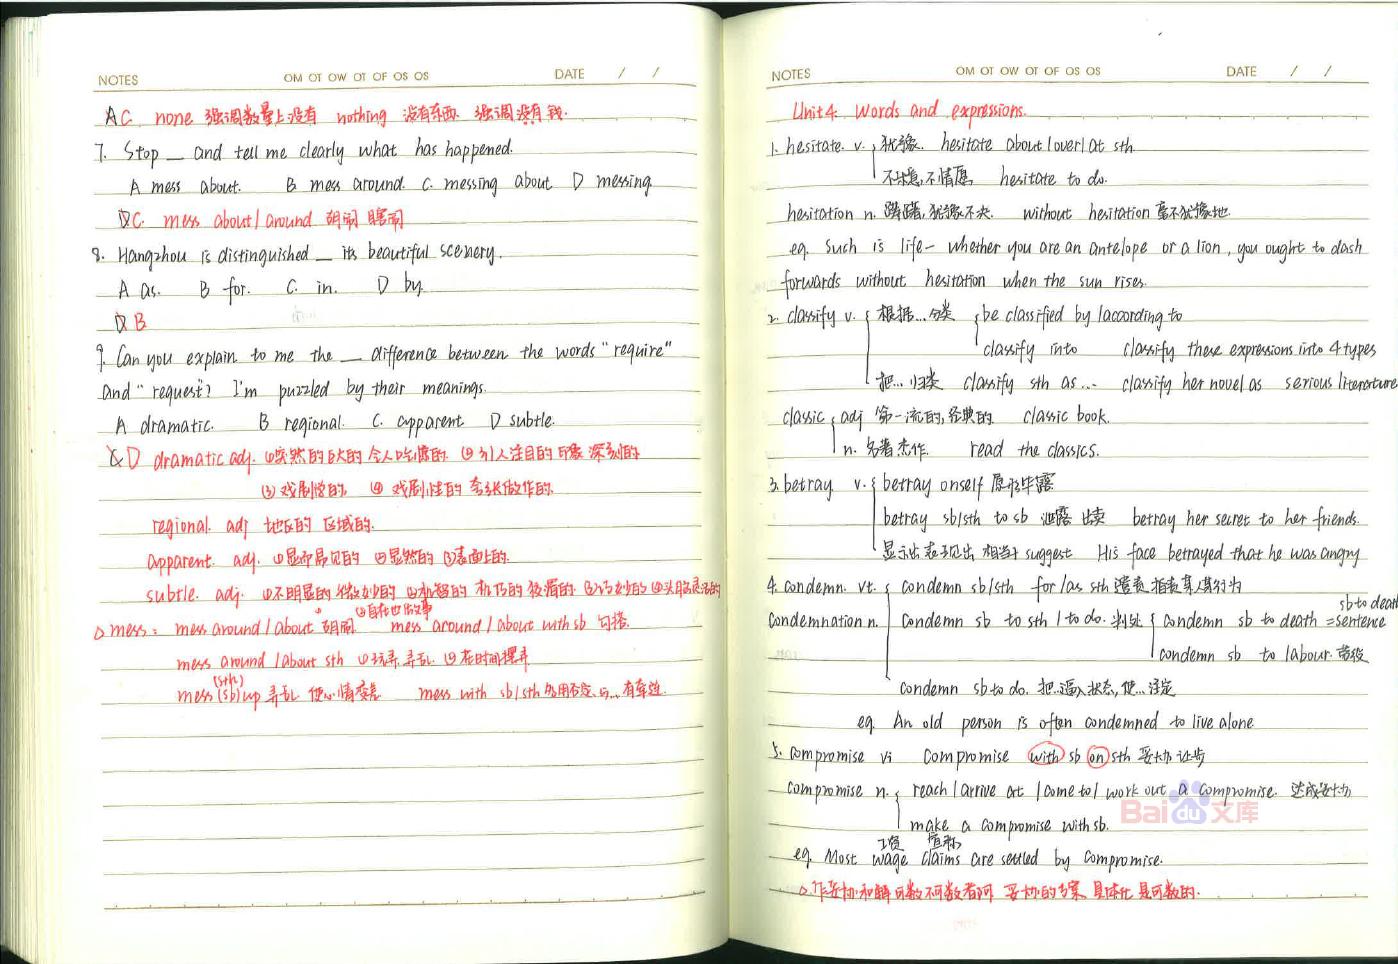 NOTES OM OT OW OT OF OS OS DATE / /
AC none 强调数量上没有 nothing 没有东西 强调没有钱.
7. Stop __ and tell me clearly what has happened.
A mess about. B mess around. C. messing about D messing.
DC. mess about/around 胡闹 瞎闹
8. Hangzhou is distinguished __ its beautiful scenery.
A as. B for. C. in. D by.
D B
9. Can you explain to me the __ difference between the words "require"
and "request"? I'm puzzled by their meanings.
A dramatic. B regional. C. apparent D subtle.
D dramatic adj. ①突然的巨大的 令人吃惊的 ②引人注目的 印象深刻的
③戏剧的. ④戏剧性的 夸张做作的.
regional. adj 地区的 区域的.
apparent. adj. ①显而易见的 ②显然的 ③表面上的.
subtle. adj. ①不明显的 微妙的 ②机智的 机巧的 狡猾的. ③巧妙的 ④头脑灵活的
mess: mess around/about 胡闹 mess around/about with sb 勾搭.
mess around/about sth ①玩弄 弄乱 ②花时间摆弄
(sth)
mess (sb) up 弄乱 使心情变差 mess with sb/sth 多用否定 与...有牵连.
NOTES OM OT OW OT OF OS OS DATE / /
Unit4: Words and expressions.
1. hesitate. v. 犹豫. hesitate about/over/at sth
不愿,不情愿 hesitate to do.
hesitation n. 踌躇,犹豫不决. without hesitation 毫不犹豫地.
eg. Such is life— whether you are an antelope or a lion, you ought to dash
forwards without hesitation when the sun rises.
2. classify v. 根据...分类 be classified by/according to
classify into classify these expressions into 4 types
把...归类 classify sth as ... classify her novel as serious literature
classic adj 第一流的,经典的 classic book.
n. 名著杰作. read the classics.
3. betray v. betray onself 原形毕露
betray sb/sth to sb 泄露 出卖 betray her secret to her friends.
显示出 表现出 相当于 suggest His face betrayed that he was angry
4. condemn. vt. condemn sb/sth for/as sth 谴责 指责某人某行为
sb to death
condemnation n. condemn sb to sth/to do. 判处 condemn sb to death = sentence
condemn sb to labour.
condemn sb to do. 把..逼入状态,使...注定
eg. An old person is often condemned to live alone
5. compromise vi compromise with sb on sth 妥协 让步
compromise n. reach/arrive at/come to/work out a compromise. 达成妥协
Bai du 文库
make a compromise with sb.
工资 宣称
eg. Most wage claims are settled by compromise.
作妥协和解可数不可数看 妥协的方案 具体化 是可数的.